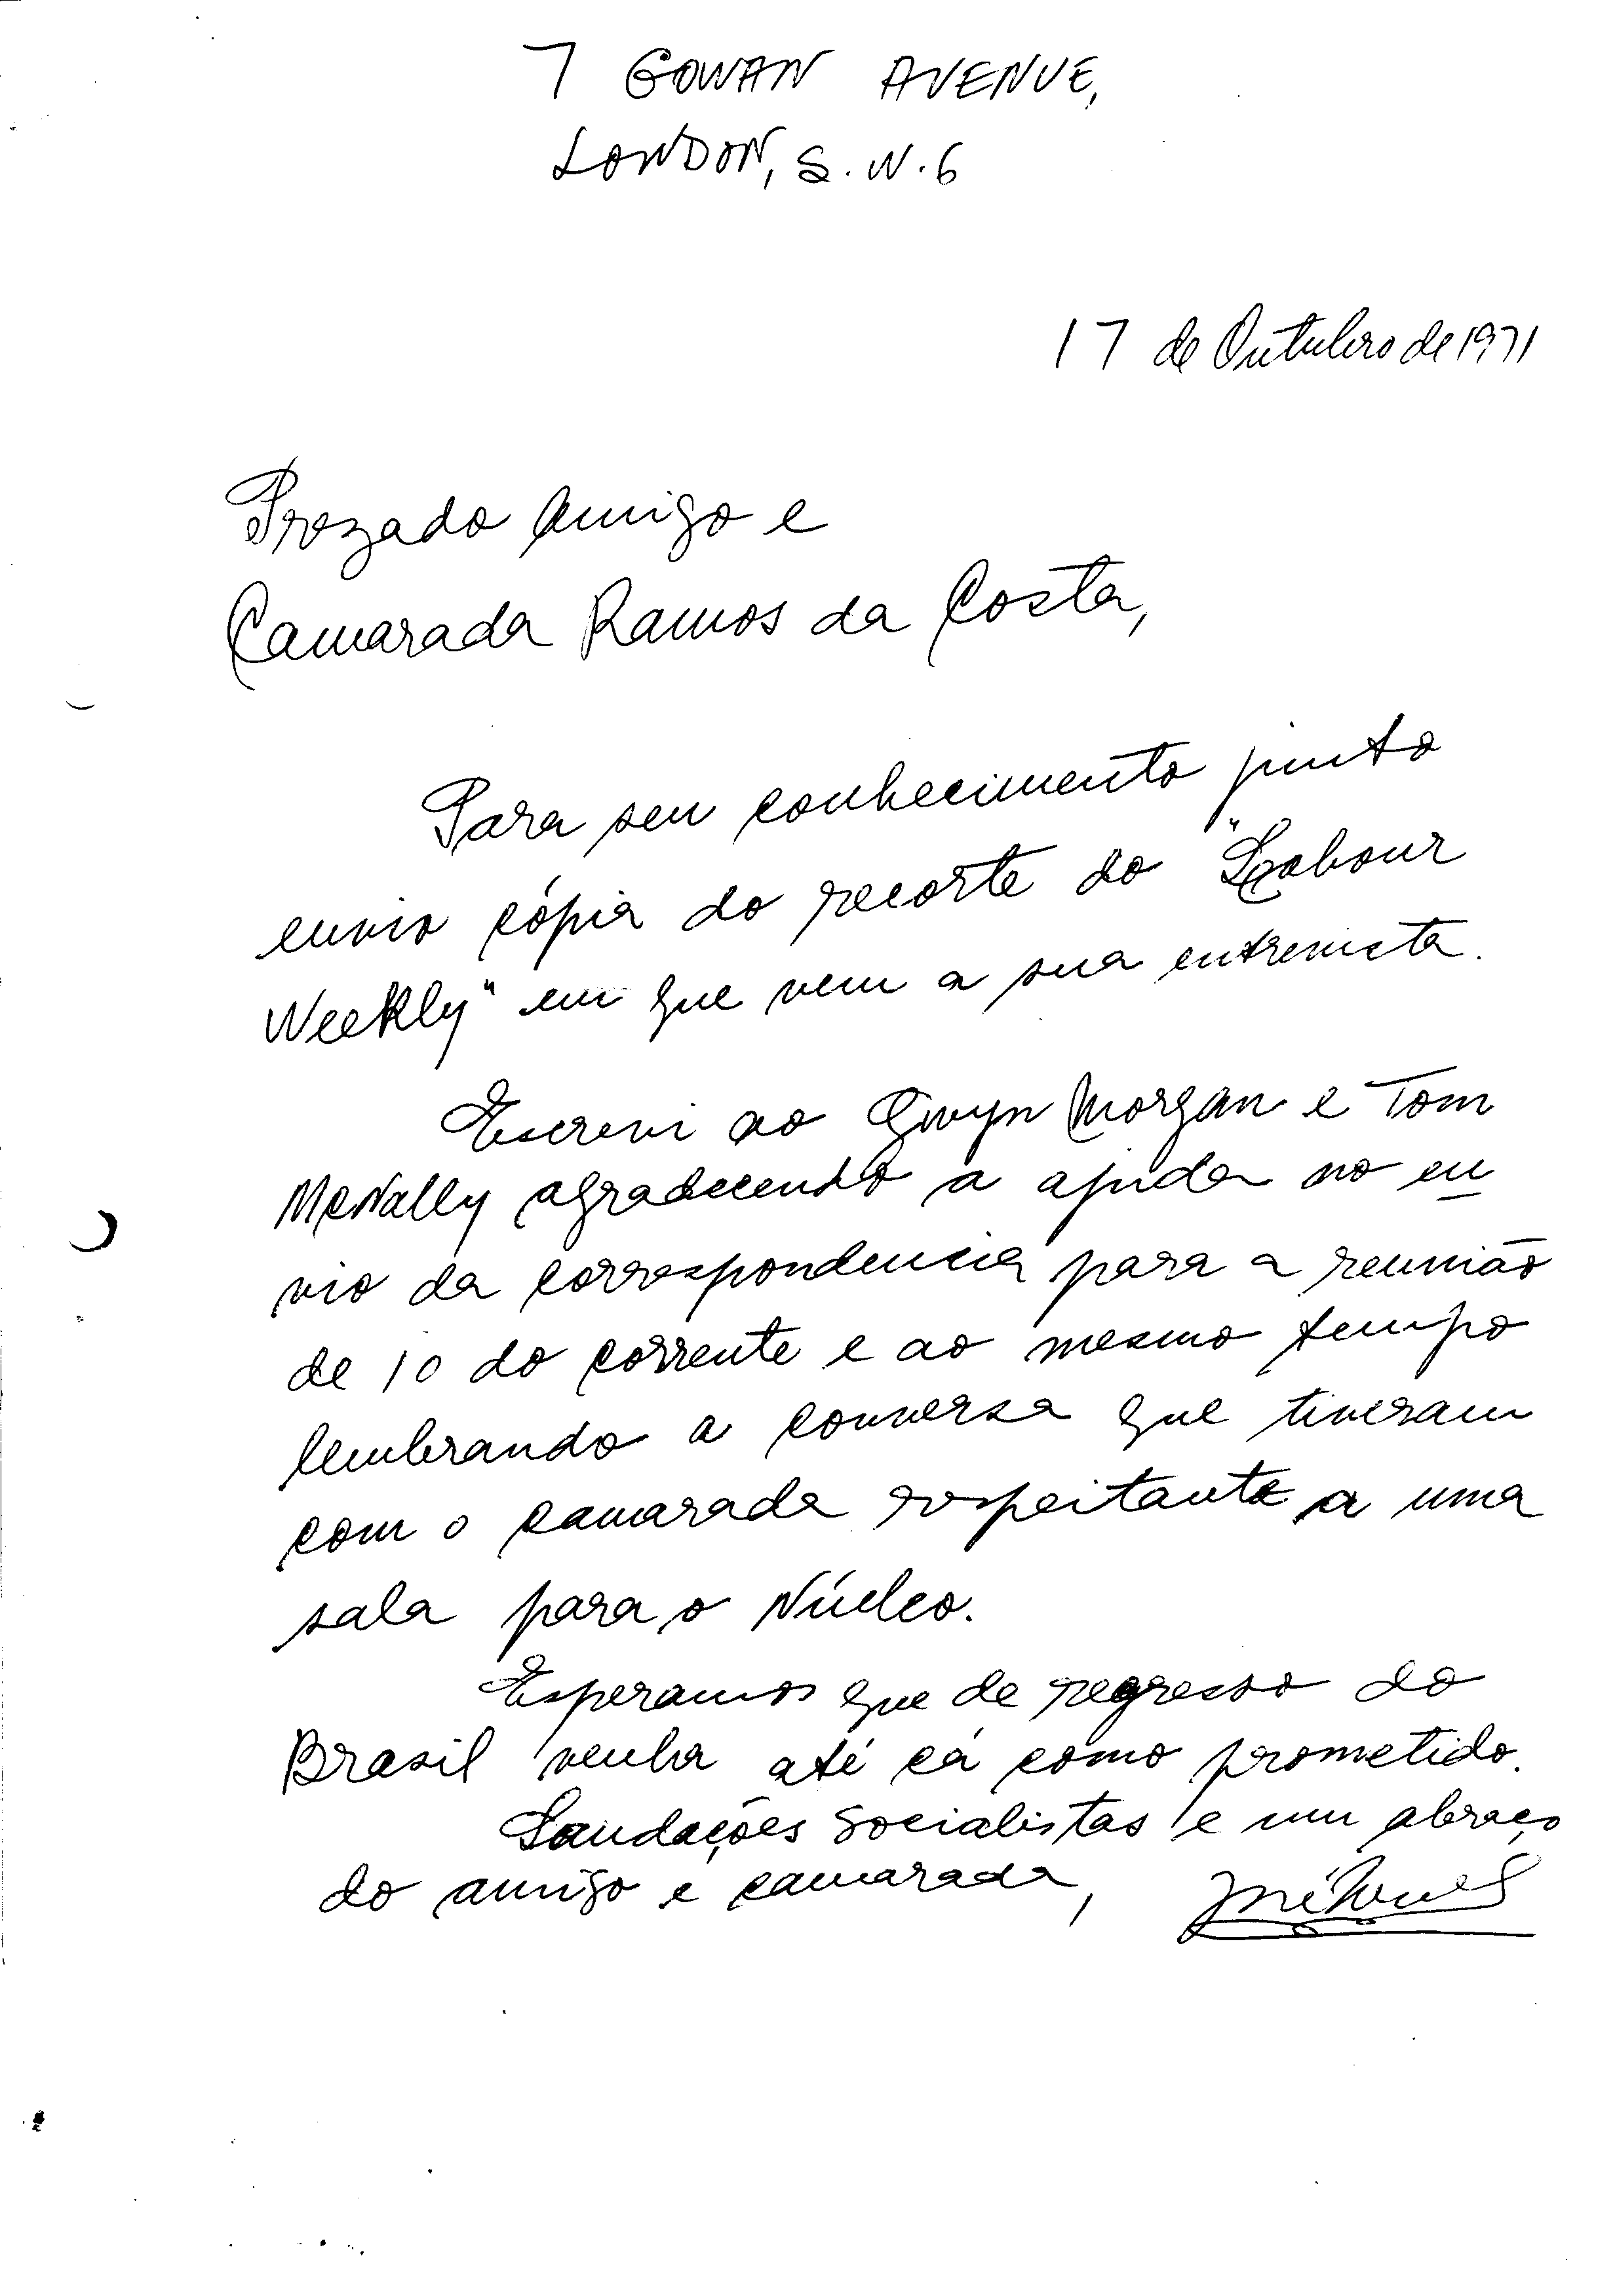 7 GOWAN AVENUE,
LONDON, S.W.6
17 de Outubro de 1971
Prezado Amigo e
Camarada Ramos da Costa,
Para seu conhecimento junto
envio cópia do recorte do "Labour
Weekly" em que vem a sua entrevista.
Escrevi ao Gwyn Morgan e Tom
McNally agradecendo a ajuda no en
vio da correspondencia para a reunião
de 10 do corrente e ao mesmo tempo
lembrando a conversa que tiveram
com o camarada respeitante a uma
sala para o Núcleo.
Esperamos que de regresso do
Brasil venha até cá como prometido.
Saudações Socialistas e um abraço
do amigo e camarada,